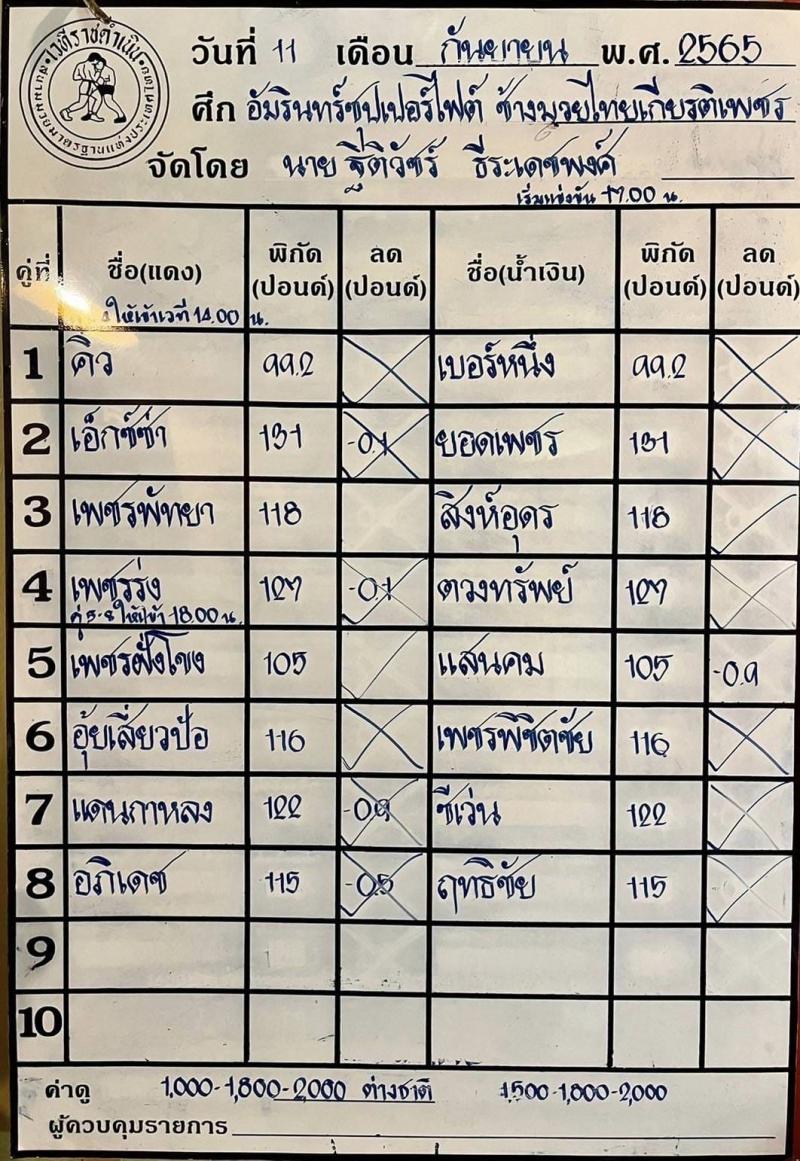 เวทีราชดำเนิน
สนามมวยมาตรฐานแห่งประเทศไทย
วันที่ 11 เดือน กันยายน พ.ศ. 2565
ศึก อัมรินทร์ซุปเปอร์ไฟต์ ช้างมวยไทยเกียรติเพชร
จัดโดย นาย ฐิติวัชร์ ธีระเดชพงศ์
เริ่มแข่งขัน 17.00 น.
คู่ที่ ชื่อ(แดง) พิกัด (ปอนด์) ลด (ปอนด์) ชื่อ(น้ำเงิน) พิกัด (ปอนด์) ลด (ปอนด์)
ให้เข้าเวที 14.00 น.
1 คิว 99.2 เบอร์หนึ่ง 99.2
2 เอ็กซ์ซ่า 131 -0.1 ยอดเพชร 131
3 เพชรพัทยา 118 สิงห์อุดร 118
4 เพชรรุ่ง 127 -0.1 ตวงทรัพย์ 127
คู่ 5-8 ให้เข้า 18.00 น.
5 เพชรฝั่งโขง 105 แสนคม 105 -0.9
6 อุ้ยเสี่ยวป้อ 116 เพชรพิชิตชัย 116
7 แดนกาหลง 122 -0.9 ซีเว่น 122
8 อภิเดช 115 -0.5 ฤทธิชัย 115
9
10
ค่าดู 1,000-1,800-2,000 ต่างชาติ 1,500-1,800-2,000
ผู้ควบคุมรายการ